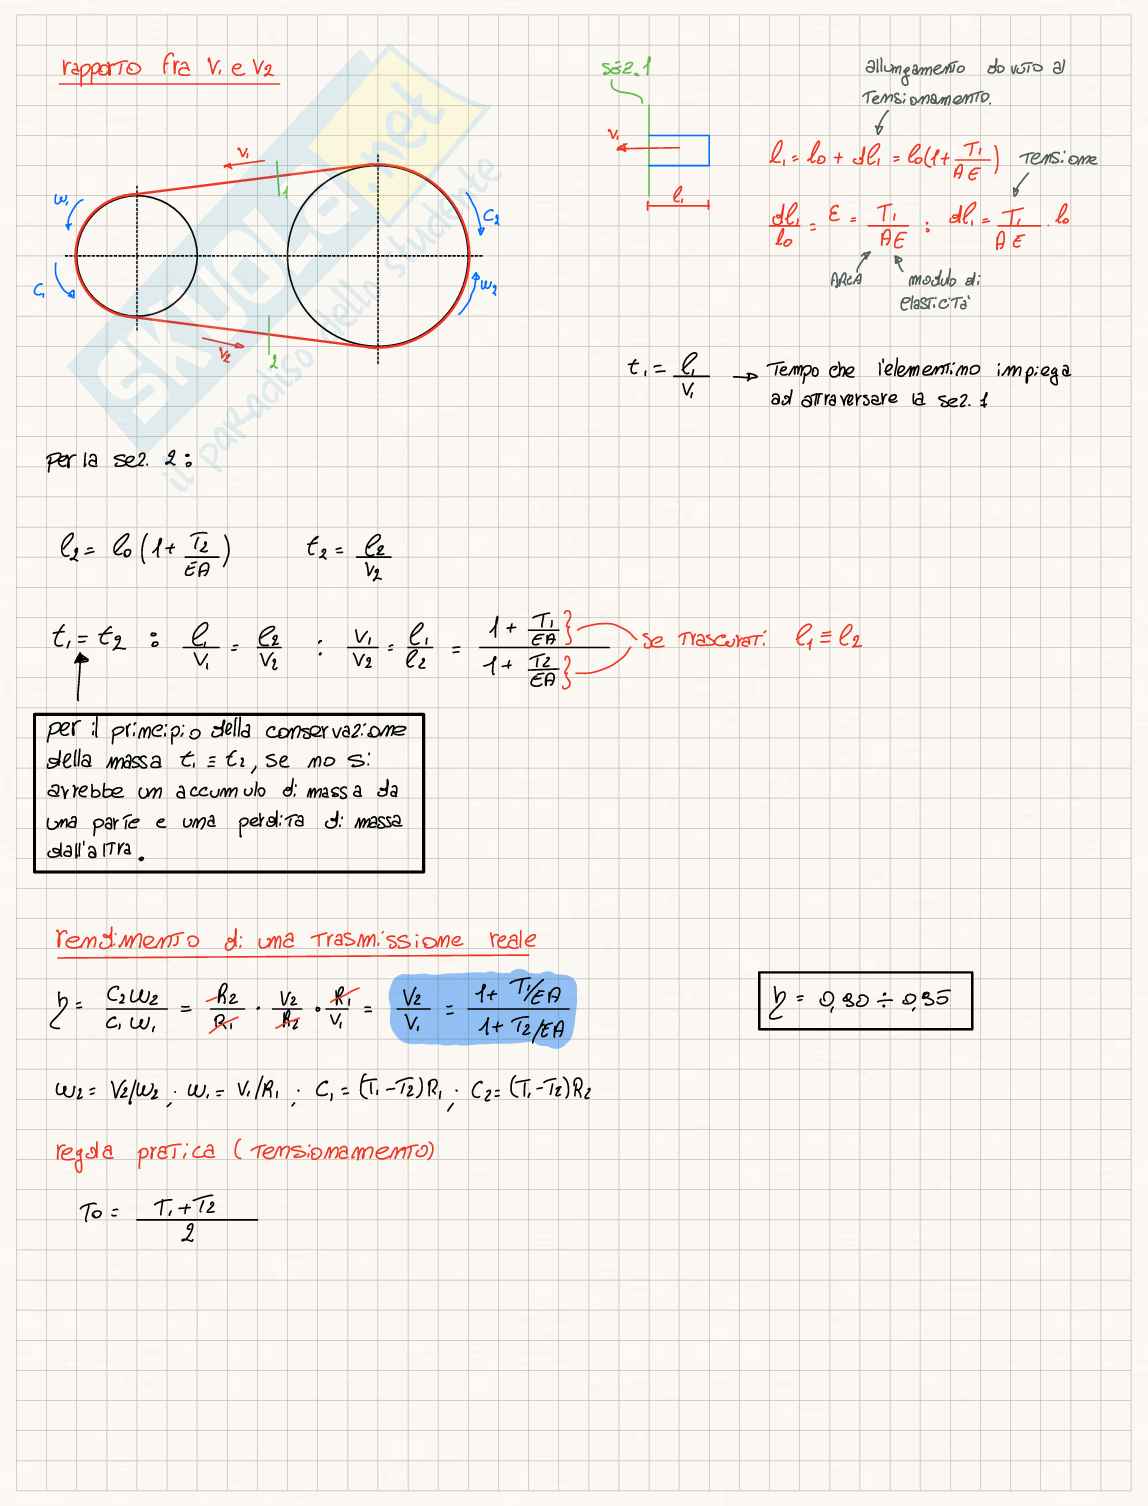 rapporto fra V₁ e V₂
sez. 1
allungamento dovuto al
tensionamento.
V₁
V₁
l₁ = l₀ + dl₁ = l₀(1 + T₁/AE)
tensione
1
ω₁
C₂
l₁
dl₁/l₀ = ε = T₁/AE ; dl₁ = T₁/AE · l₀
C₁
ω₂
AREA
modulo di
elasticità
V₂
2
t₁ = l₁/V₁ → tempo che l'elementino impiega
ad attraversare la sez. 1
per la sez. 2 :
l₂ = l₀(1 + T₂/EA) t₂ = l₂/V₂
t₁ = t₂ : l₁/V₁ = l₂/V₂ : V₁/V₂ = l₁/l₂ = (1 + T₁/EA)/(1 + T₂/EA) se trascurati l₁ ≡ l₂
per il principio della conservazione
della massa t₁ ≡ t₂, se no si
avrebbe un accumulo di massa da
una parte e una perdita di massa
dall'altra.
rendimento di una trasmissione reale
η = C₂ω₂/C₁ω₁ = R₂/R₁ · V₂/R₂ · R₁/V₁ = V₂/V₁ = (1 + T₁/EA)/(1 + T₂/EA)
η = 0,90 ÷ 0,95
ω₂ = V₂/ω₂ ; ω₁ = V₁/R₁ ; C₁ = (T₁-T₂)R₁ ; C₂ = (T₁-T₂)R₂
regola pratica (tensionamento)
T₀ = (T₁ + T₂)/2
SKUOLA.net
il paradiso dello studente